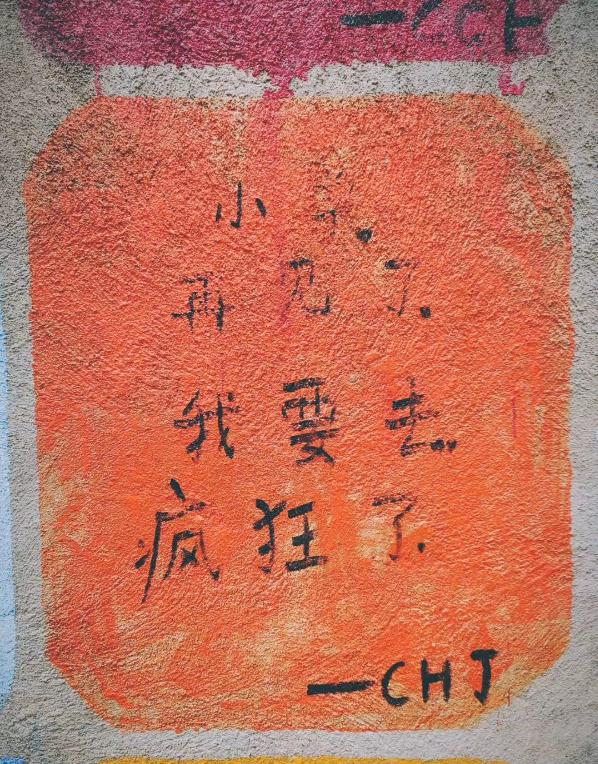 —CCH
小
再见了.
我要去
疯狂了.
—CHJ